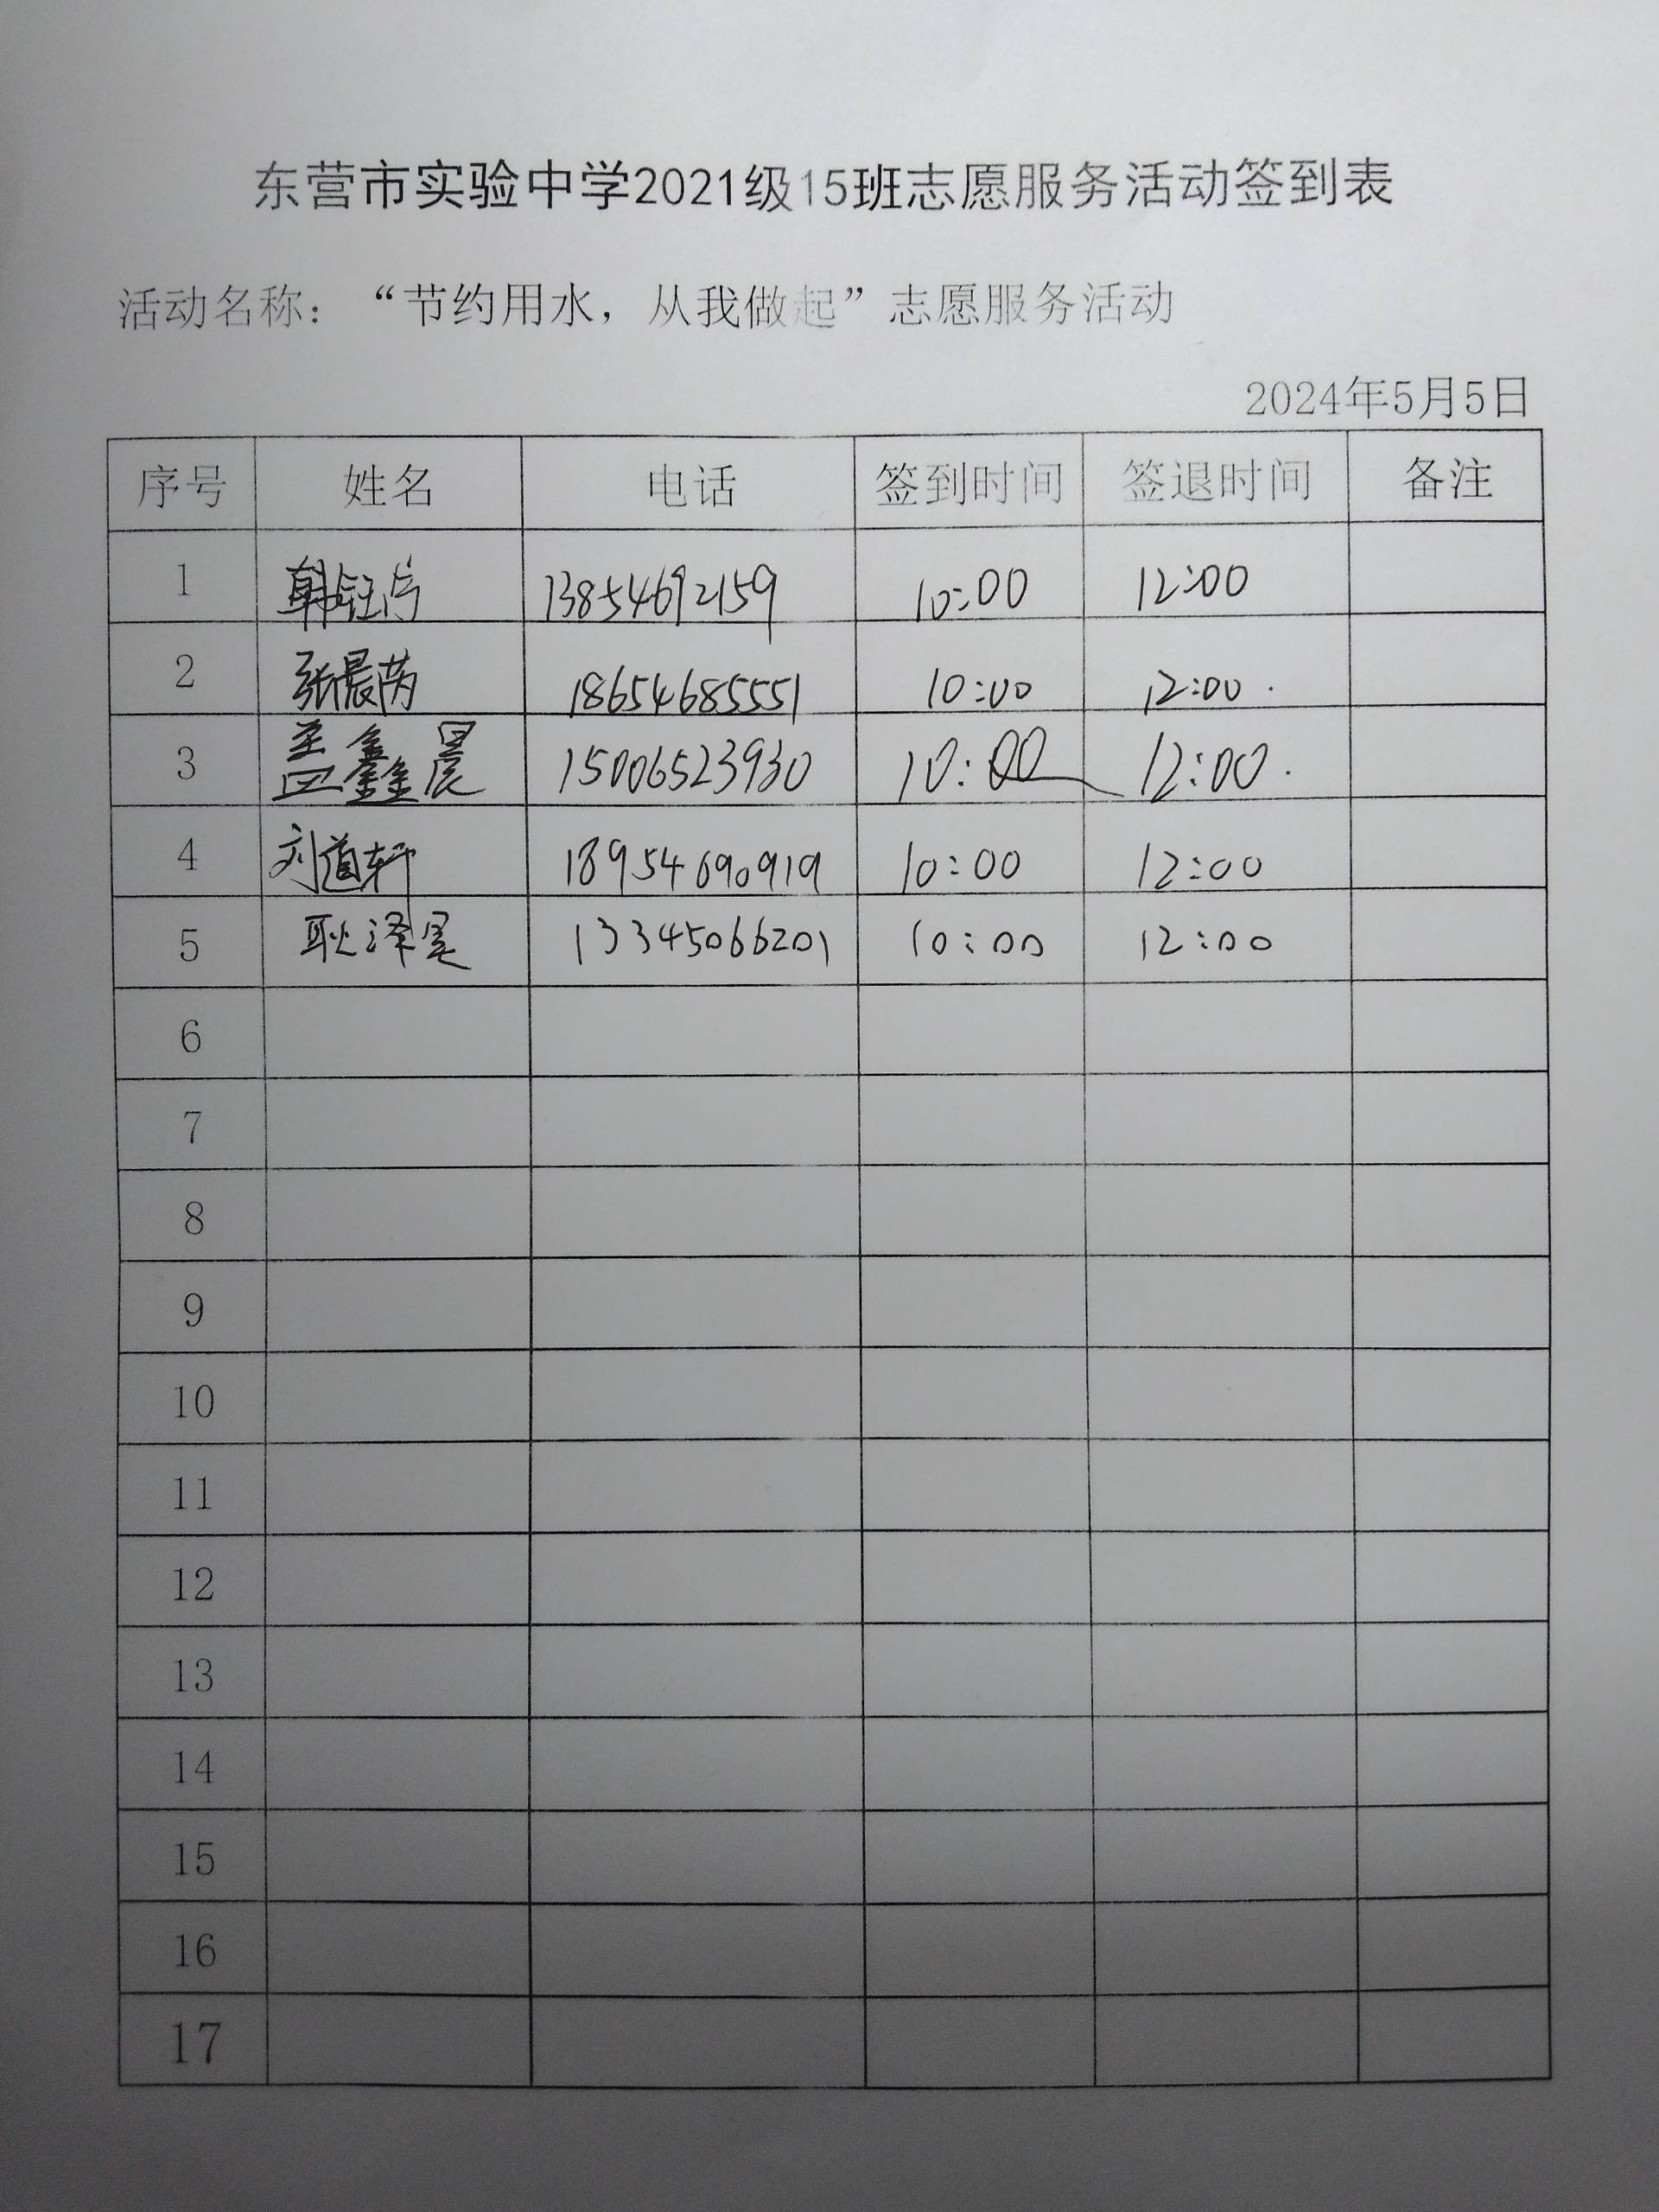 东营市实验中学2021级15班志愿服务活动签到表
活动名称：“节约用水，从我做起”志愿服务活动
2024年5月5日
序号 姓名 电话 签到时间 签退时间 备注
1 韩钰 13854692159 10:00 12:00
2 张晨芮 18654685551 10:00 12:00.
3 盖鑫晨 15006523930 10:00 12:00.
4 刘道轩 18954690919 10:00 12:00
5 耿泽昊 13345066201 10:00 12:00
6
7
8
9
10
11
12
13
14
15
16
17